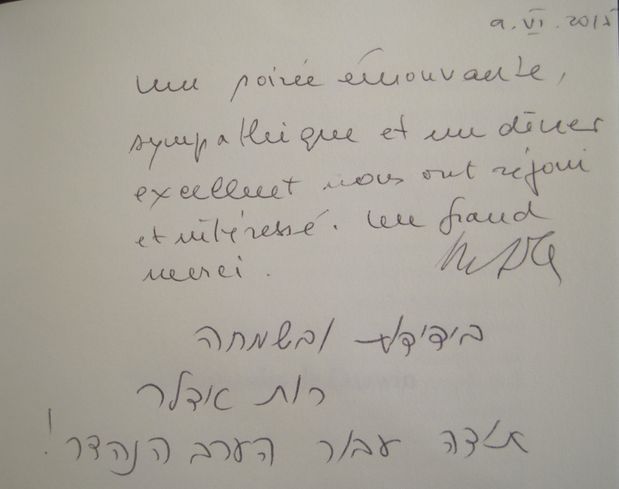 9.VI.2015
un soirée émouvante,
sympathique et un dîner
excellent nous ont réjoui
et intéressé. Un grand
merci.
בידידות ובשמחה
רות אדלר
תודה עבור הערב הנהדר!